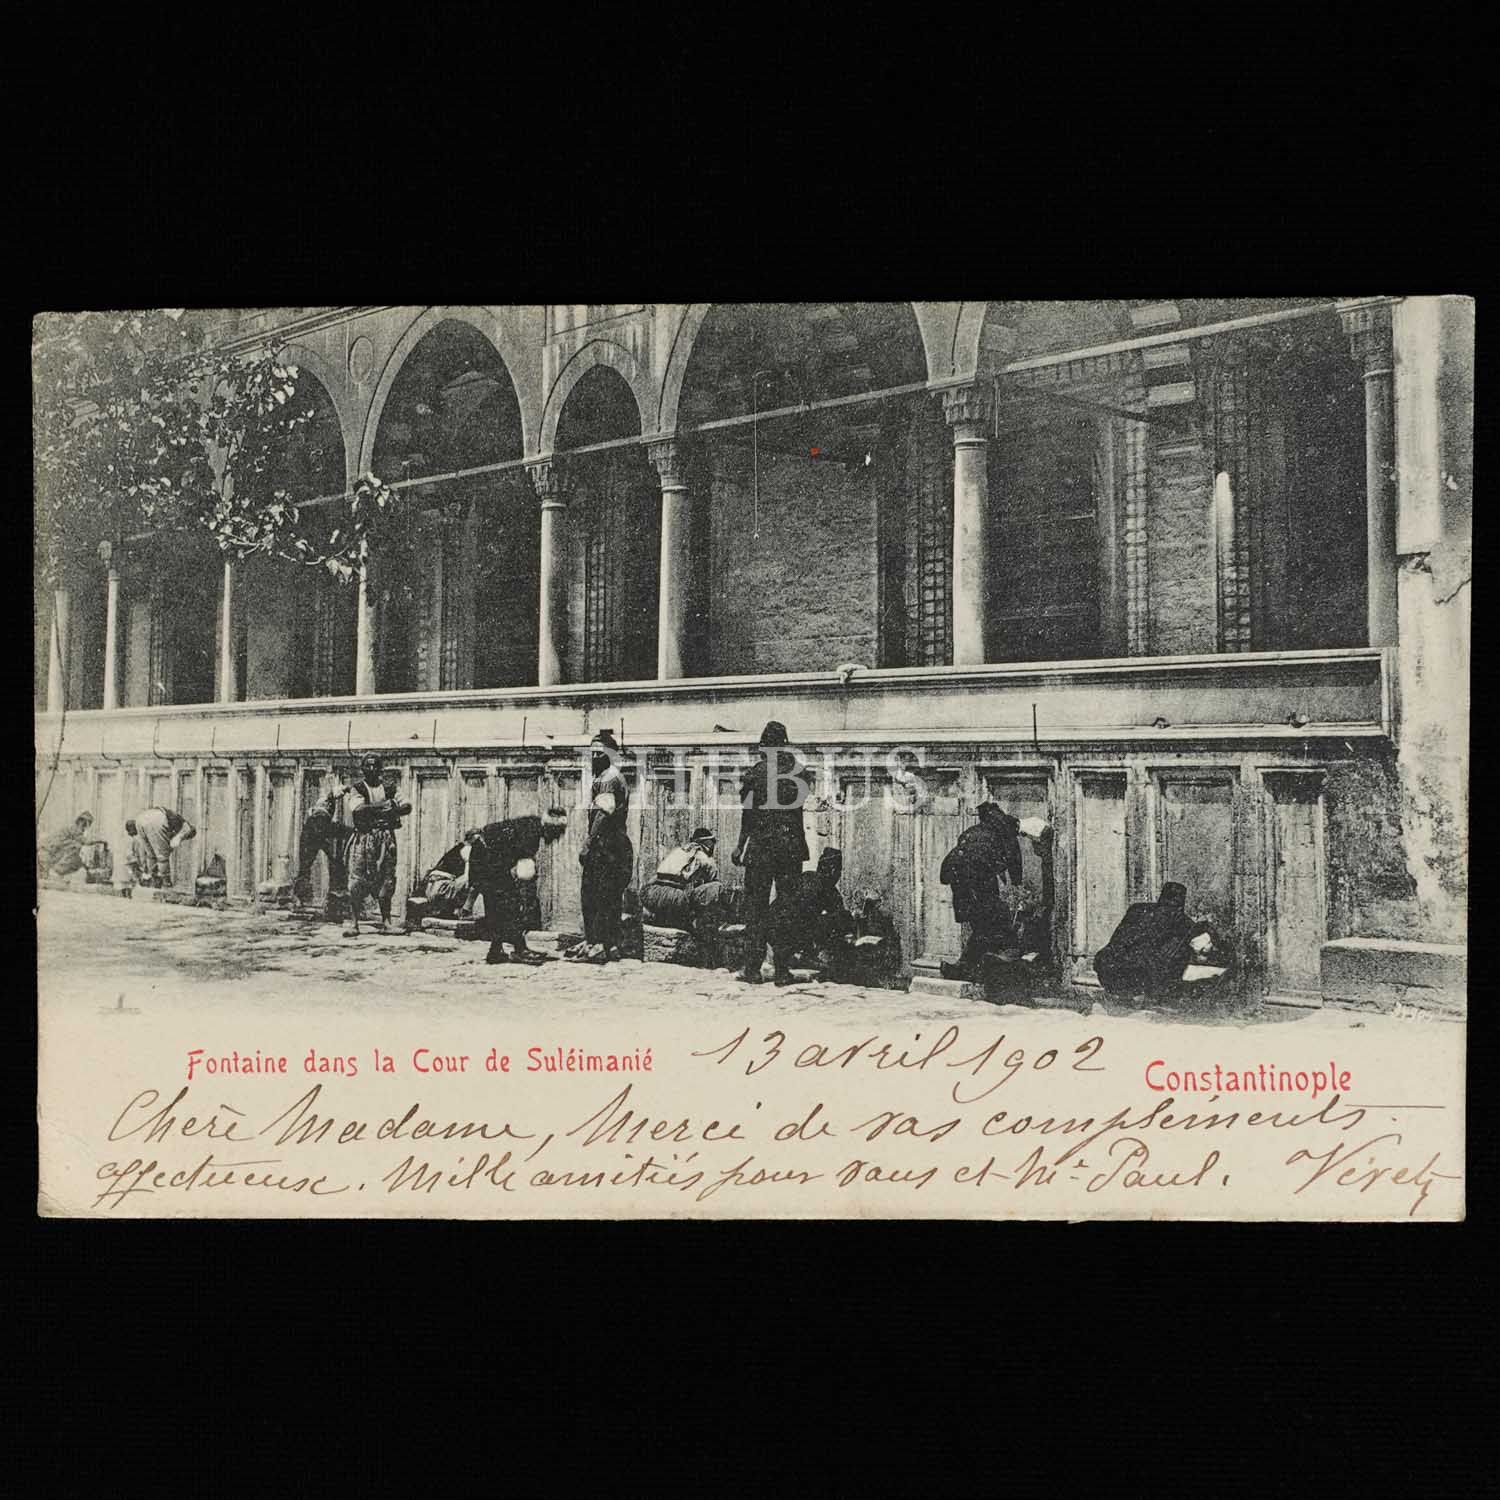 PHEBUS
Fontaine dans la Cour de Suléimanié 13 avril 1902 Constantinople
Chère Madame, Merci de vos compléments
affectueux. Mille amitiés pour vous et Mr Paul.